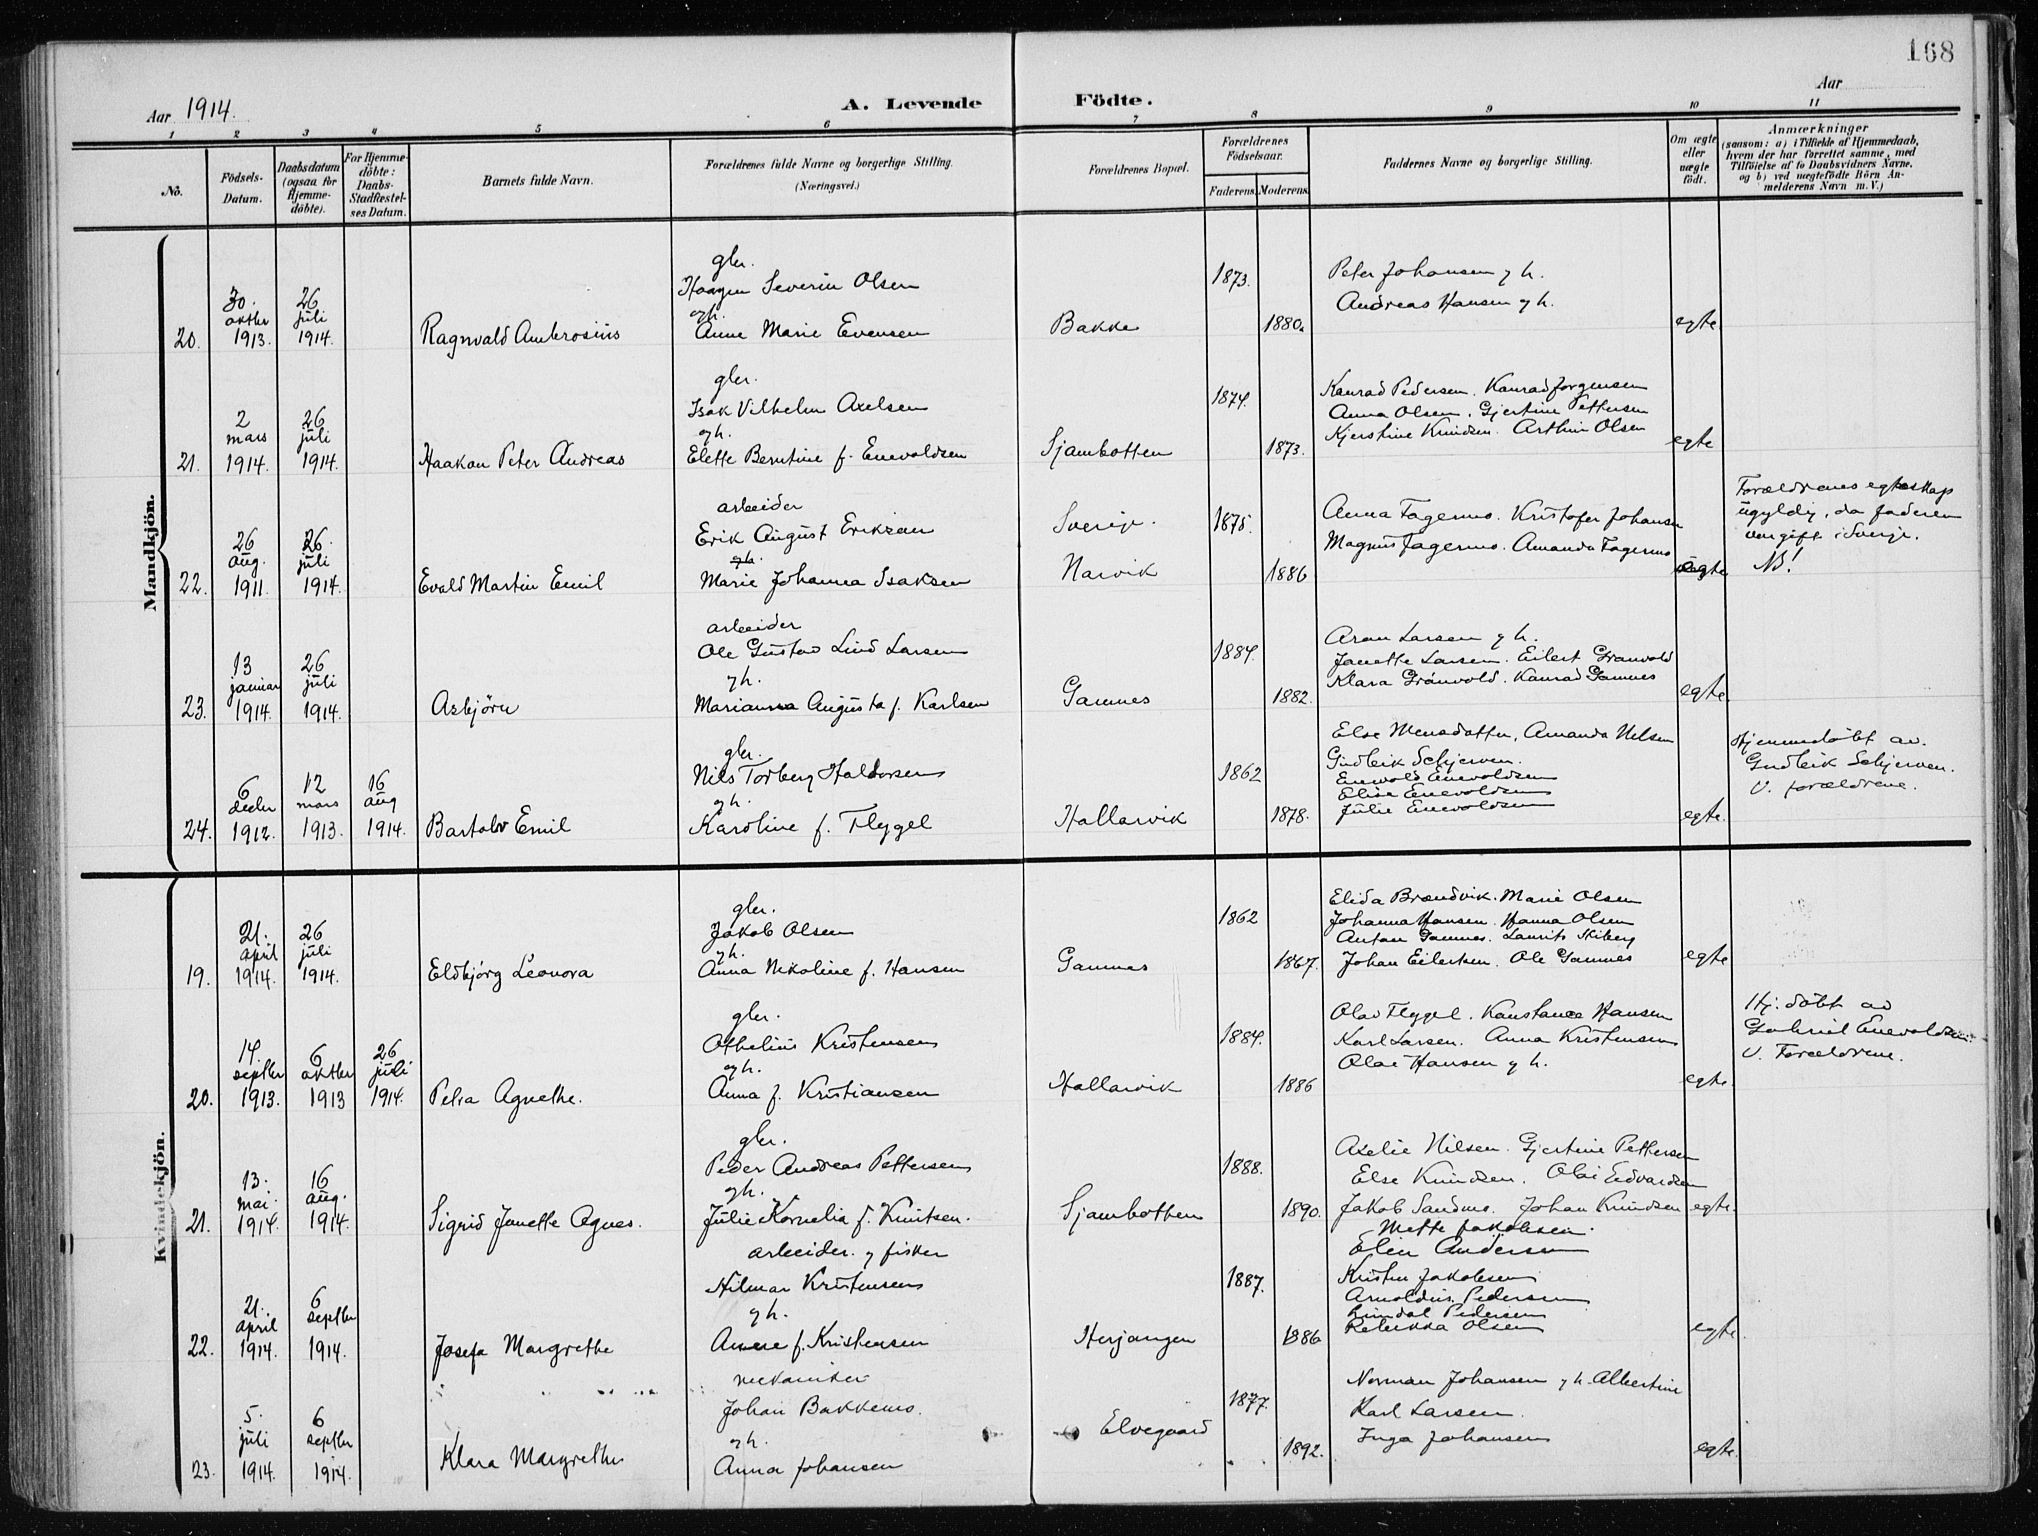 168
Aar 1914.
A. Levende Födte.
Aar
1 2 3 4 5 6 7 8 9 10 11
No.
Födsels-Datum.
Daabsdatum (ogsaa for Hjemme-döbte).
For Hjemme-döbte: Daabs-Stadfæstel-ses Datum.
Barnets fulde Navn.
Forældrenes fulde Navne og borgerlige Stilling. (Næringsvei.)
Forældrenes Bopæl.
Forældrenes Födselsaar.
Faderens. Moderens.
Faddernes Navne og borgerlige Stilling.
Om ægte eller uægte födt.
Anmærkninger
(saasom: a) i Tilfælde af Hjemmedaab,
hvem der har forrettet samme, med
Tilföielse af to Daabsvidners Navne,
og b) ved uægtefödte Börn An-
melderens Navn m. V.)
Mandkjön.
20.
30. oktbr 1913.
26 juli 1914.
Ragnvald Ambrosius
gbr.
Haagen Severin Olsen
og h.
Anne Marie Evensen
Bakke
1873.
1880.
Peter Johansen og h.
Andreas Hansen og h.
egte
21.
2 mars 1914.
26 juli 1914.
Haakon Peter Andreas
gbr.
Isak Vilhelm Axelsen
og h.
Elette Berntine f. Enevoldsen
Sjambotten
1874.
1873.
Konrad Pedersen. Konrad Jørgensen
Anna Olsen. Gjertine Pettersen
Kjerstine Knudsen. Arthur Olsen
egte
22.
26 aug. 1911.
26. juli 1914.
Evald Martin Emil
arbeider
Erik August Erikzon
og h.
Marie Johanna Isaksen
Sverige.
Narvik
1875.
1886
Anna Fagermo. Kristofer Johansen
Magnus Fagermo. Amanda Fagermo
uegte
Forældrenes egteskap
ugyldig, da faderen
var gift i Sverige.
NB!
23.
13 januar 1914.
26 juli 1914.
Asbjørn
arbeider
Ole Gustav Lind Larsen
og h.
Marianna Augusta f. Karlsen
Gamnes
1884.
1882.
Aron Larsen og h.
Janette Larsen. Eilert Grønvold
Klara Grönvold. Konrad Gamnes
egte.
24.
6 decbr 1912.
12 mars 1913.
16 aug 1914.
Bartolv Emil
gbr.
Nils Torberg Haldorsen
og h.
Karoline f. Flygel
Hallarvik
1862
1878.
Else Monsdatter, Amanda Nilsen
Gudleik Schjerven.
Enevold Enevoldsen
Elise Enevoldsen
Julie Enevoldsen
egte.
Hjemmedöbt av
Gudleik Schjerven.
V. forældrene.
Kvindekjön.
19.
21. april 1914.
26 juli 1914.
Eldbjørg Leonora
gbr.
Jakob Olsen
og h.
Anna Nikoline f. Hansen
Gamnes
1862
1867.
Elida Brandvik. Marie Olsen
Johanna Hansen. Hanna Olsen
Anton Gamnes. Laurits Skiberg
Johan Eilertsen. Ole Gamnes
egte
20.
14. septbr 1913.
6 oktbr 1913
26 juli 1914.
Petra Agnethe.
gbr.
Othelius Kristensen
og h.
Anna f. Kristiansen
Hallarvik
1884.
1886
Olav Flygel. Konstance Hansen
Karl Larsen. Anna Kristensen
Olai Hansen og h.
egte
Hj. döbt av
Gabriel Enevoldsen
V. Forældrene.
21.
13. mai 1914.
16 aug. 1914.
Sigrid Janette Agnes.
gbr.
Peder Andreas Pettersen
og h.
Julie Kornelia f. Knutsen.
Sjambotten
1888.
1890.
Axelie Nilsen. Gjertine Pettersen
Else Knudsen. Olai Edvardsen
Jakob Sandmo. Johan Knudsen
Mette Jakobsen.
egte.
22.
21. april 1914.
6 septbr 1914.
Josefa Margrethe
arbeider og fisker
Hilmar Kristensen
og h.
Anne f. Kristensen
Herjangen
1887.
1886
Elen Andersen
Kristen Jakobsen
Arnoldus Pedersen
Lindal Pedersen
Rebekka Olsen
egte.
23.
5. juli 1914.
6 septbr 1914.
Klara Margrethe
mekaniker
Johan Bakkemo.
og h.
Anna Johansen
Elvegaard
1877.
1892.
Norman Johansen og h. Albertine
Karl Larsen.
Inga Johansen
egte.